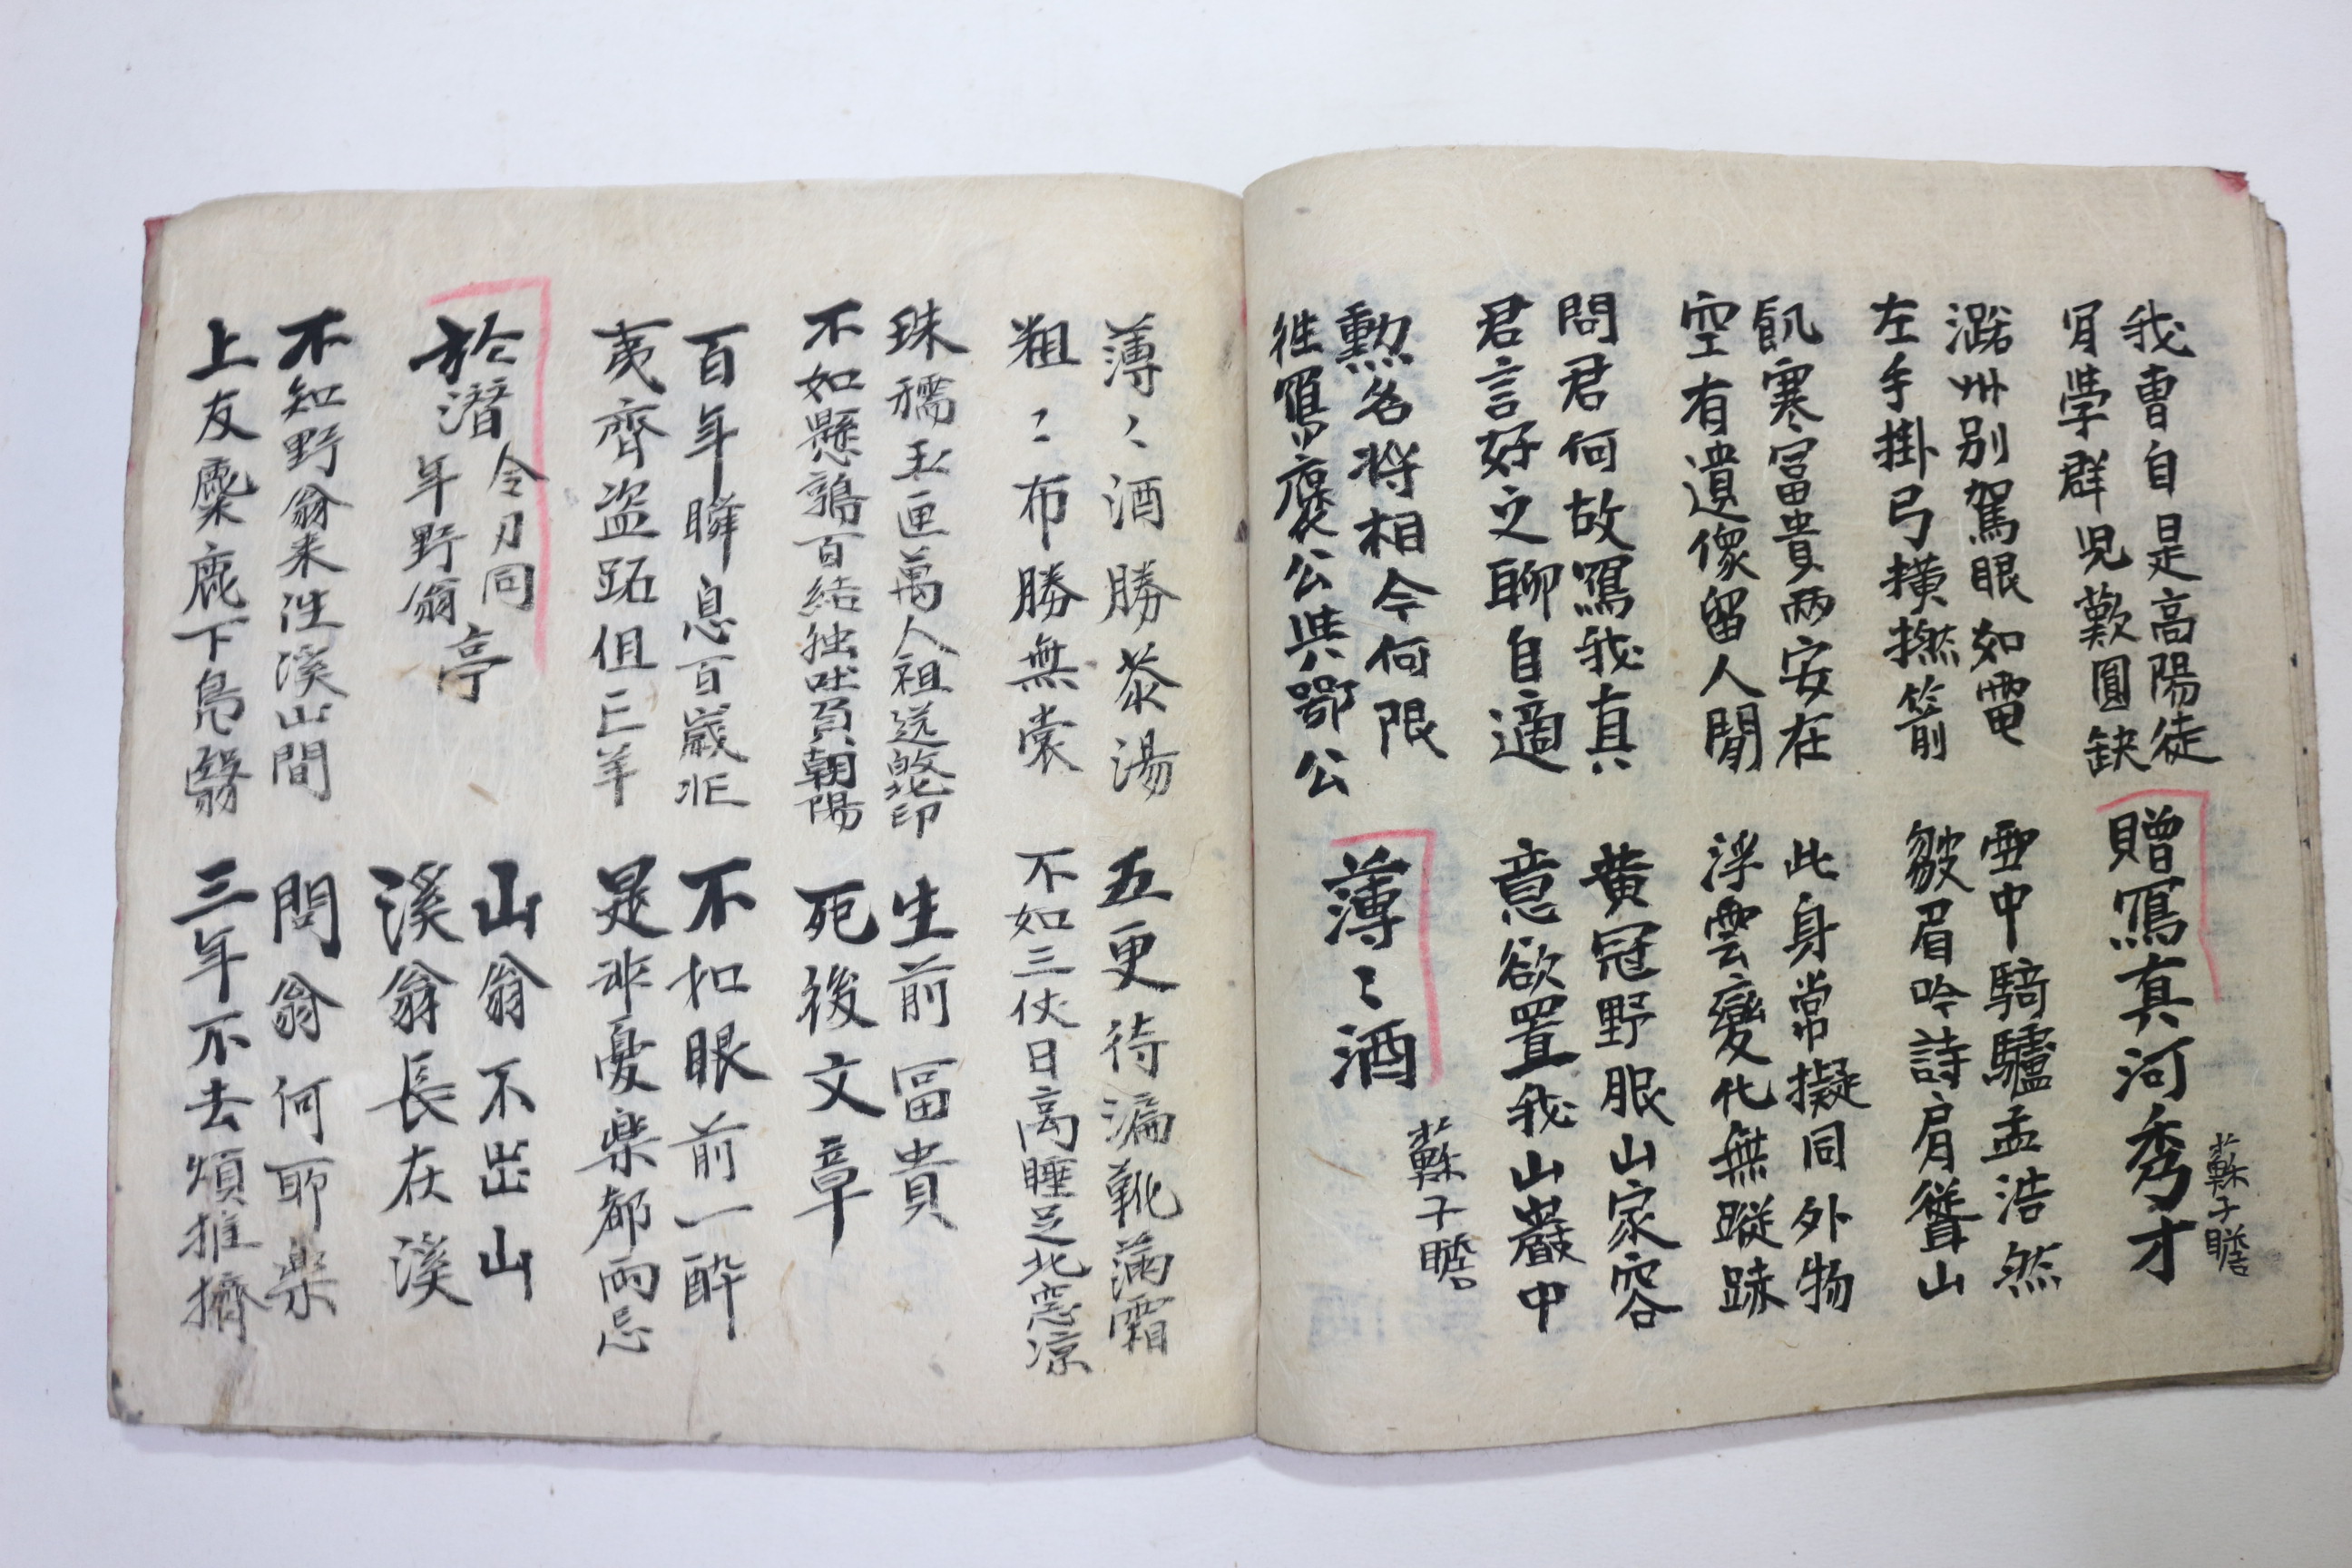 我曹自是高陽徒
肯学群児歎圓缺
贈寫真河秀才
蘇子瞻
潞州別駕眼如電
左手掛弓横撚箭
雪中騎驢孟浩然
皺眉吟詩肩聳山
飢寒富貴両安在
空有遺像留人間
此身常擬同外物
浮雲變化無蹤跡
問君何故寫我真
君言好之聊自適
黄冠野服山家容
意欲置我山巖中
勲名将相今何限
往寫褒公與鄂公
薄〻酒
蘇子瞻
薄〻酒勝茶湯
粗〻布勝無裳
五更待漏靴満霜
不如三伏日高睡足北窓凉
珠襦玉匣萬人祖送歸北邙
不如懸鶉百結独坐負朝陽
生前冨貴
死後文章
百年瞬息百歳忙
夷齊盗跖俱亡羊
不如眼前一酔
是非憂楽都両忘
於潜令刁同年野翁亭
山翁不出山
溪翁長在溪
不知野翁来往溪山間
上友麋鹿下鳧鷖
問翁何所楽
三年不去煩推擠